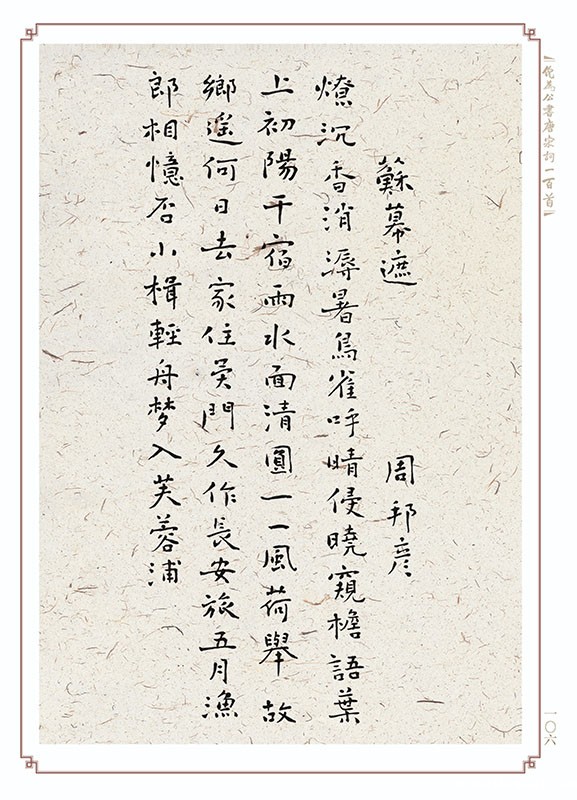 蘇幕遮
周邦彦
燎沉香消溽暑鳥雀呼晴侵曉窺檐語葉
上初陽干宿雨水面清圓一一風荷舉 故
鄉遙何日去家住吳門久作長安旅五月漁
郎相憶否小楫輕舟梦入芙蓉浦
佗為公書唐宋詞一百首
一〇六